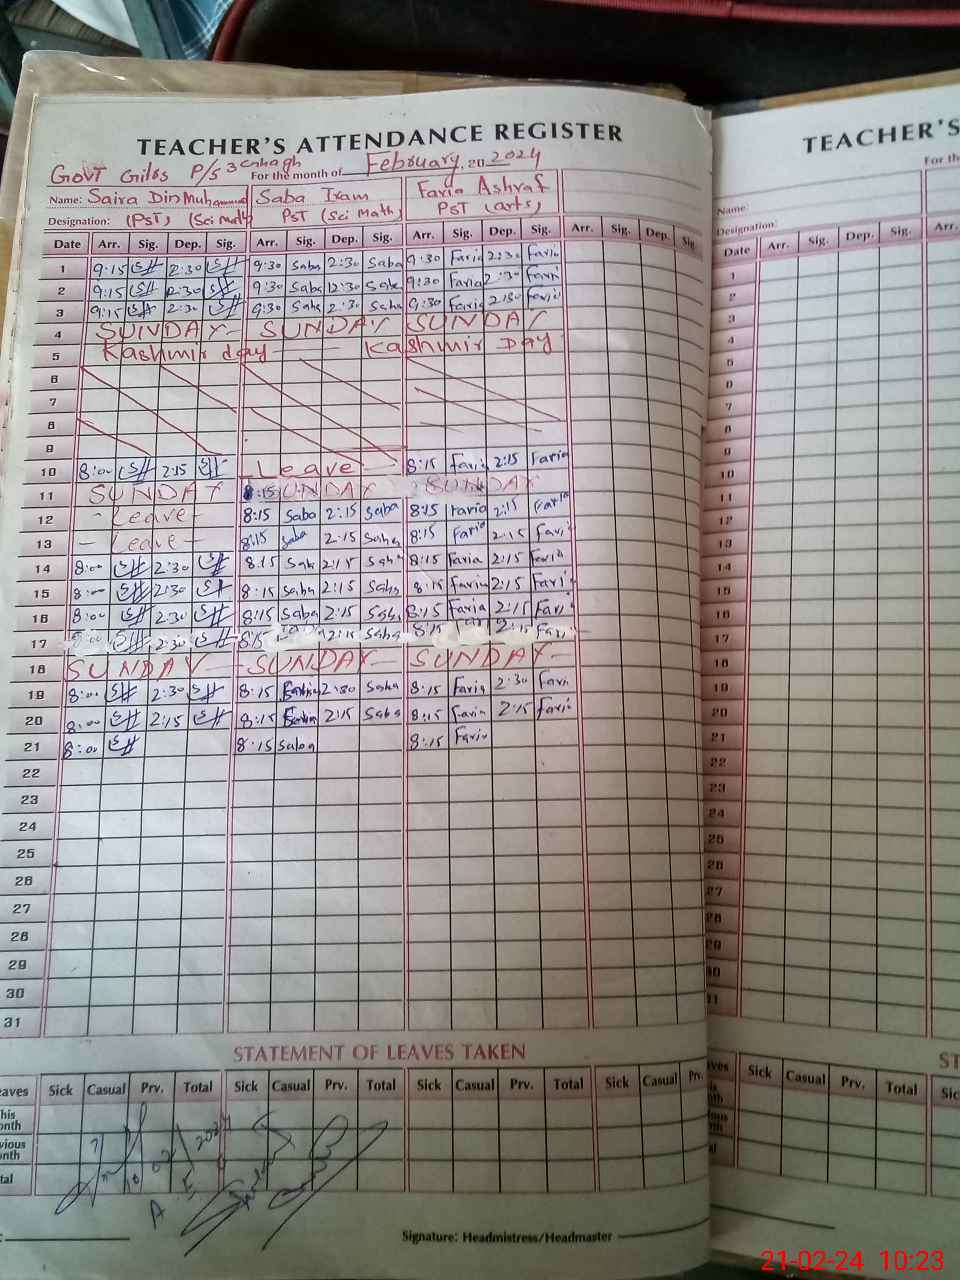 TEACHER'S ATTENDANCE REGISTER
GovT Girls P/S 3 For the month of February, 20 2024
Name: Saira Din Muhammad Saba Iram Faria Ashraf
Designation: (PST) (Sci Math) PST (Sci Math) PST (arts)
Date Arr. Sig. Dep. Sig. Arr. Sig. Dep. Sig. Arr. Sig. Dep. Sig. Arr. Sig. Dep. Sig.
1 9:15 2:30 9:30 Saba 2:30 Saba 9:30 Faria 2:30 Faria
2 9:15 2:30 9:30 Saba 2:30 Saba 9:30 Faria 2:30 Faria
3 9:15 2:30 9:30 Saba 2:30 Saba 9:30 Faria 2:30 Faria
4 SUNDAY SUNDAY SUNDAY
5 Kashmir day Kashmir Day
6
7
8
9
10 8:00 2:15 Leave 8:15 Faria 2:15 Faria
11 SUNDAY 8:15 SUNDAY SUNDAY
12 - Leave - 8:15 Saba 2:15 Saba 8:15 Faria 2:15 Faria
13 - Leave - 8:15 Saba 2:15 Saba 8:15 Faria 2:15 Fari
14 8:00 2:30 8:15 Sab 2:15 Saba 8:15 Faria 2:15 Faria
15 8:00 2:30 8:15 Saba 2:15 Saba 8:15 Faria 2:15 Fari
16 8:00 2:30 8:15 Saba 2:15 Saba 8:15 Faria 2:15 Fari
17 8:00 2:30 8:15 2:15 Saba 8:15 2:15 Fari
18 SUNDAY SUNDAY SUNDAY
19 8:00 2:30 8:15 2:30 Saba 8:15 Faria 2:30 Fari
20 8:00 2:15 8:15 2:15 Saba 8:15 Faria 2:15 Fari
21 8:00 8:15 Saba 8:15 Faria
22
23
24
25
26
27
28
29
30
31
STATEMENT OF LEAVES TAKEN
eaves Sick Casual Prv. Total Sick Casual Prv. Total Sick Casual Prv. Total Sick Casual Prv.
his
onth
vious
onth
tal
02 2024
Signature: Headmistress/Headmaster
TEACHER'S
For th
Name:
Designation:
Date Arr. Sig. Dep. Sig. Arr.
1
2
3
4
5
6
7
8
9
10
11
12
13
14
15
16
17
18
19
20
21
22
23
24
25
26
27
28
29
30
31
ST
ves Sick Casual Prv. Total Sic
21-02-24 10:23